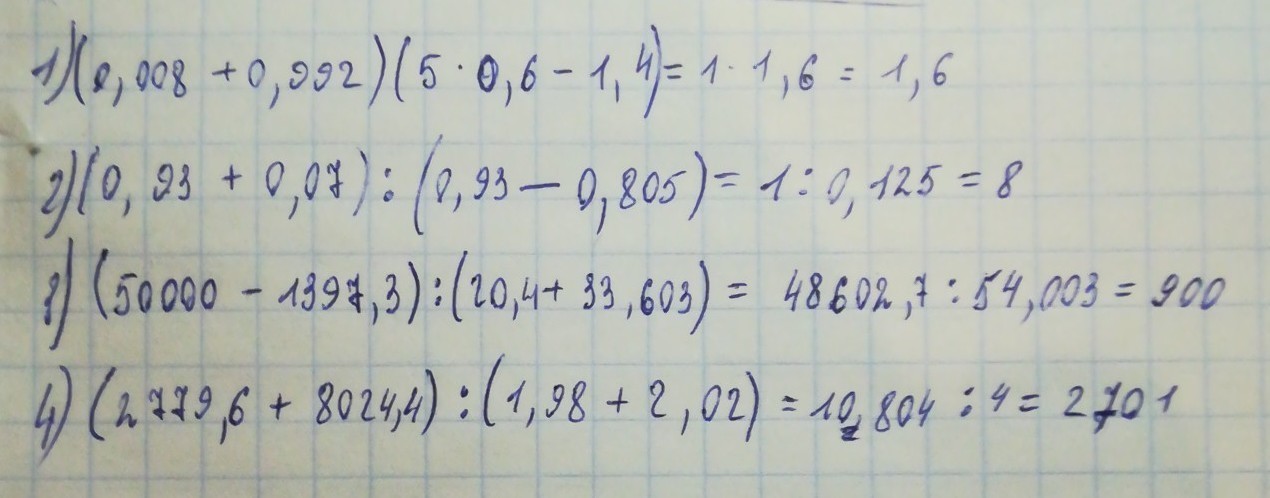 1) (0,008 + 0,992) (5 · 0,6 - 1,4) = 1 · 1,6 = 1,6
2) (0,93 + 0,07) : (0,93 - 0,805) = 1 : 0,125 = 8
3) (50000 - 1397,3) : (20,4 + 33,603) = 48602,7 : 54,003 = 900
4) (2779,6 + 8024,4) : (1,98 + 2,02) = 10,804 : 4 = 2701